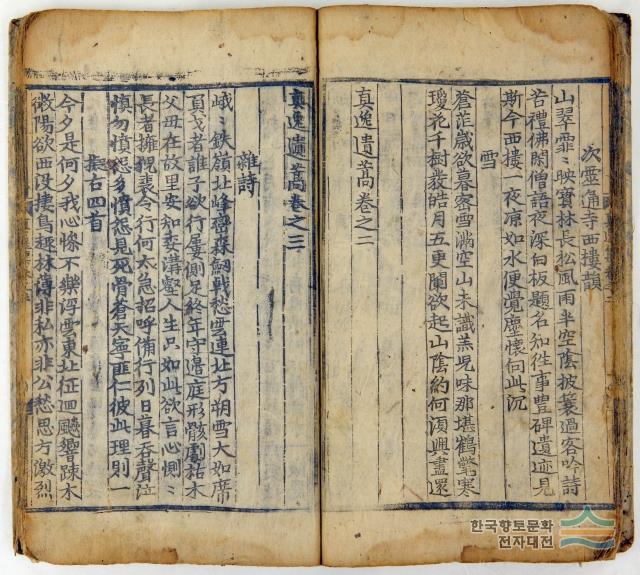 次靈通寺西樓韻
山翠霏〻映寶林長松風雨半空陰披簑過客吟詩
苦禮佛閑僧語夜深白板題名知往事豊碑遺迹見
斯今西樓一夜凉如水便覺塵懷向此沉
雪
蒼茫歲欲暮寒雪滿空山未識羔兒味那堪鶴氅寒
瓊花千樹發皓月五更闌欲起山陰約何須興盡還
真逸遺藁卷之二
真逸遺藁卷之三
雜詩
峨〻鉄嶺北峰巒森劒戟愁雲連北方朔雪大如席
負戈者誰子欲行屢側足終年守邊庭形骸劇枯木
父母在故里安知委溝壑人生只如此欲言心惻〻
長者擁貂裘令行何太急招呼備行列日暮吞聲泣
慎勿憤怨多憤怨見死骨蒼天寧匪仁彼此理則一
擬古四首
今夕是何夕我心慘不樂浮雲東北征迴飈響疎木
微陽欲西没捿鳥趣林薄非私亦非公愁思方激烈
한국향토문화
전자대전